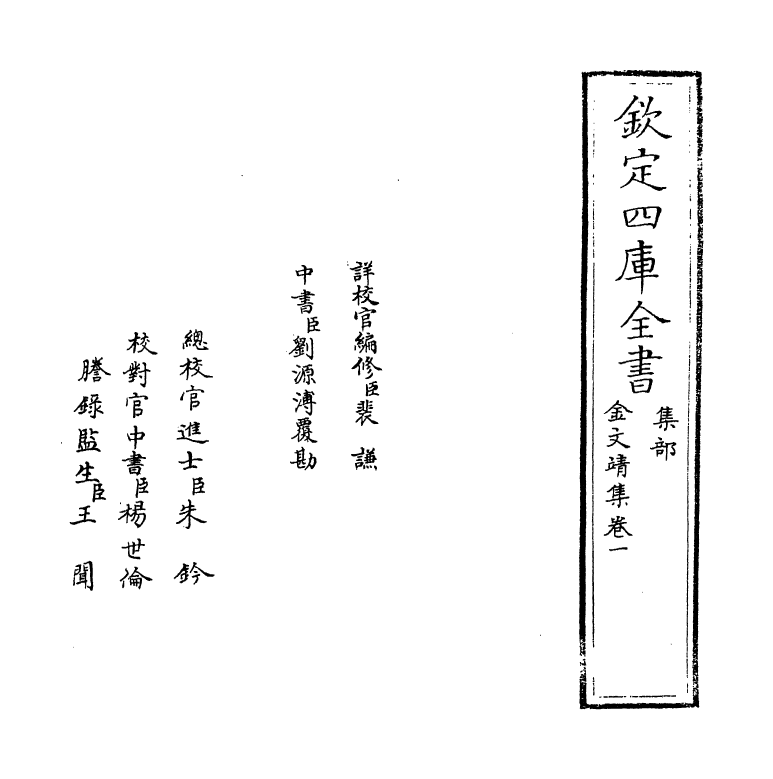 欽定四庫全書
集部
金文靖集卷一
詳校官編修臣裴謙
中書臣劉源溥覆勘
總校官進士臣朱鈐
校對官中書臣楊世倫
謄錄監生臣王聞